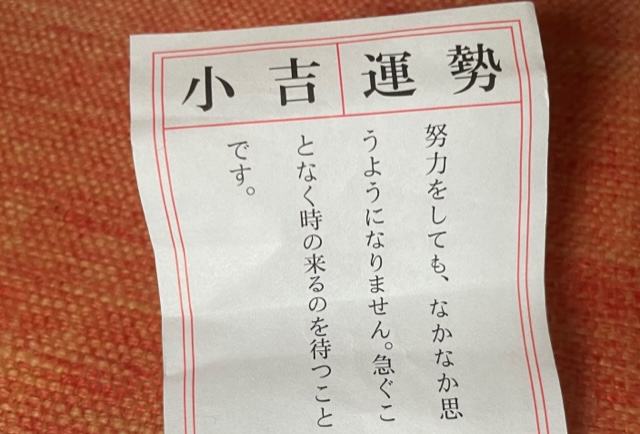 運勢
小吉
努力をしても、なかなか思
うようになりません。急ぐこ
となく時の来るのを待つこと
です。